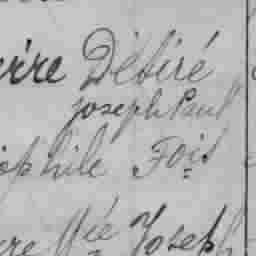 erre Désiré
Joseph Paul
ophile Fois
rre Née Joseph